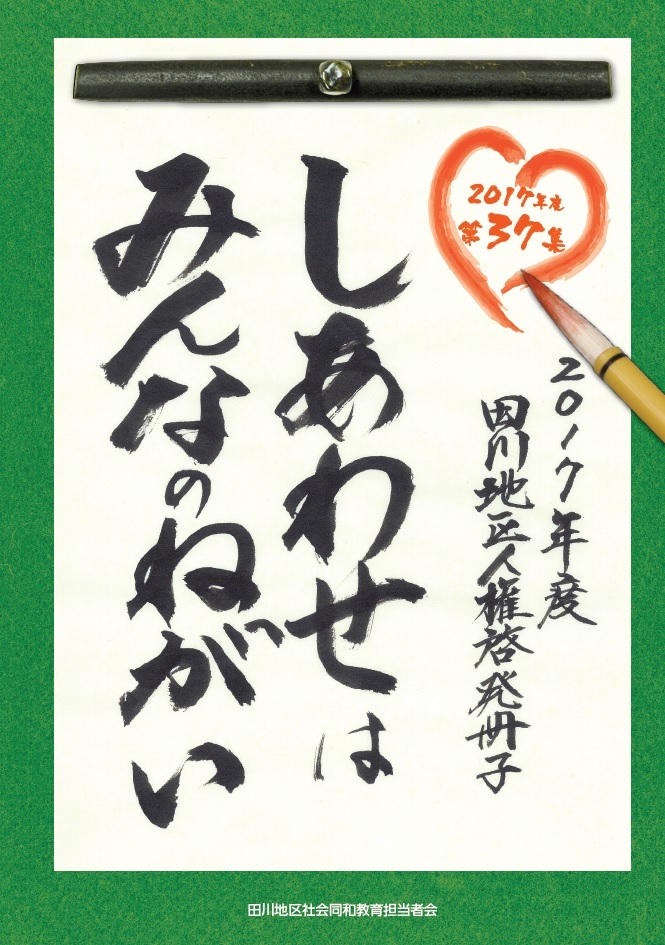 2017年度
第37集
2017年度
田川地区人権啓発冊子
しあわせは
みんなのねがい
田川地区社会同和教育担当者会